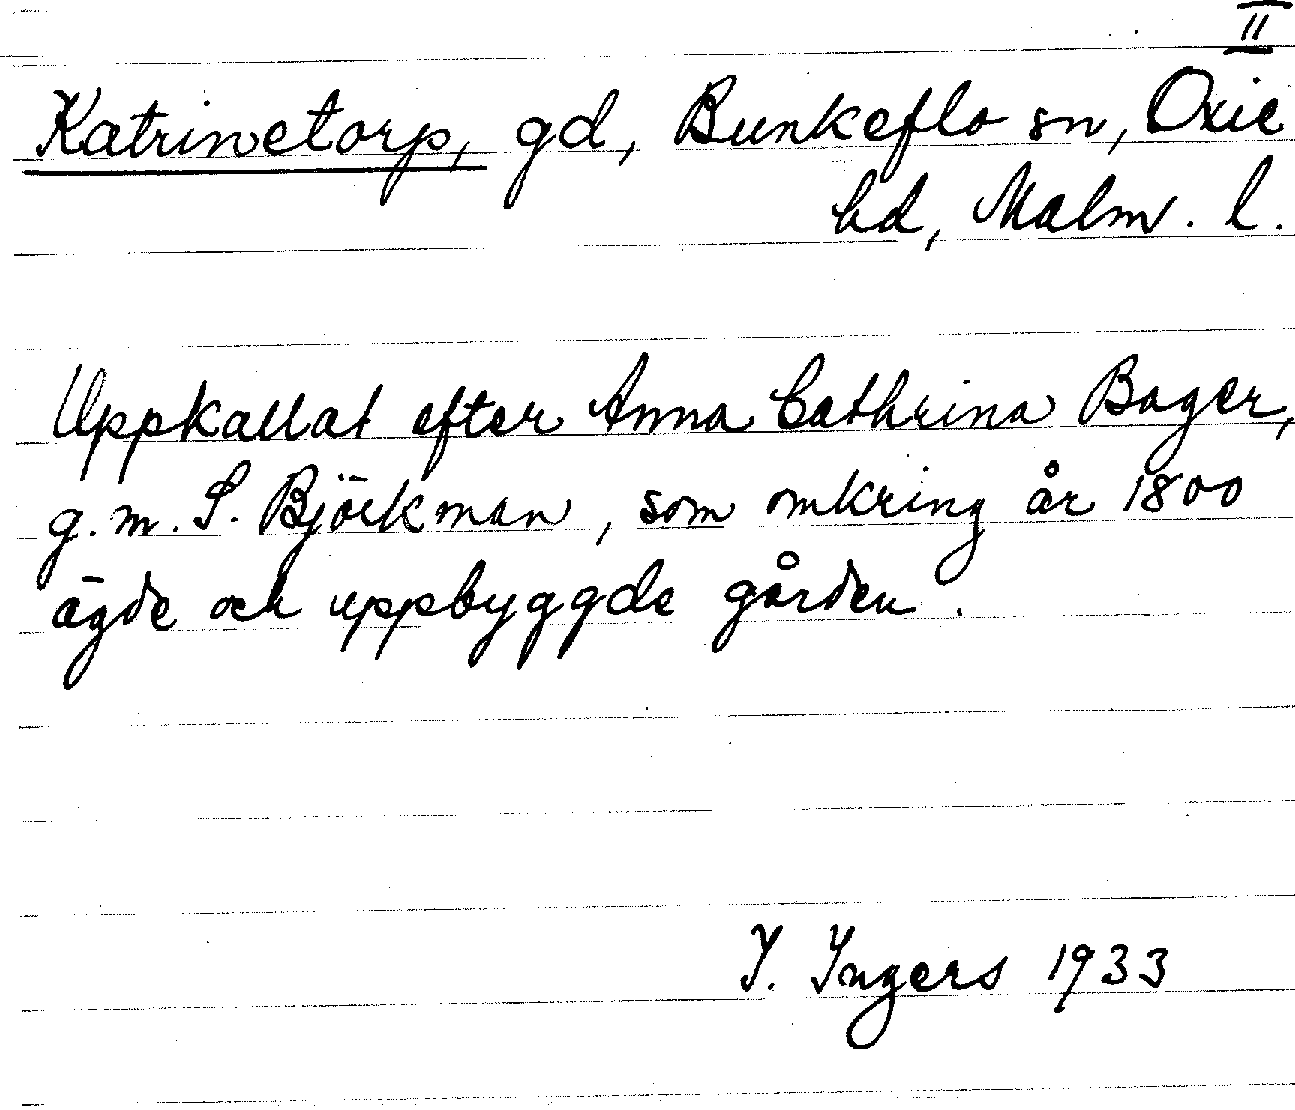 II
Katrinetorp, gd, Bunkeflo sn, Oxie
hd, Malm. l.
Uppkallat efter Anna Cathrina Bager,
g.m. S. Björkman, som omkring år 1800
ägde och uppbyggde gården.
I. Ingers 1933